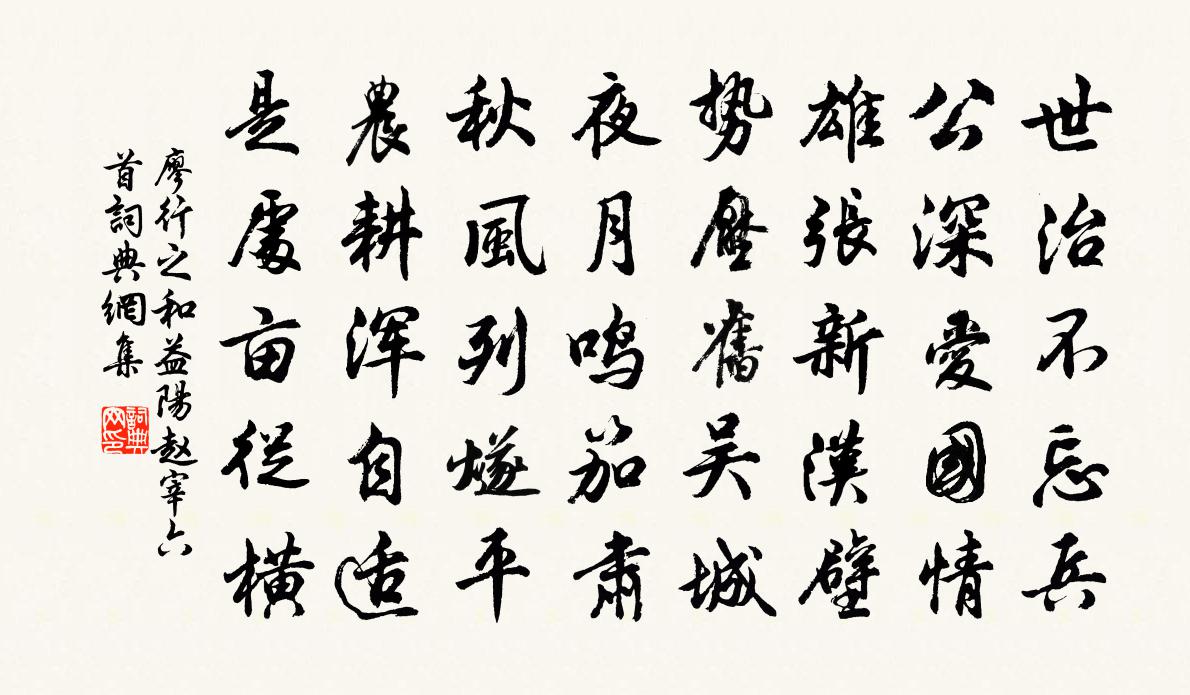 世治不忘兵
公深愛國情
雄張新漢壁
勢壓舊吴城
夜月鸣笳肅
秋風列燧平
農耕浑自适
是處亩從横
廖行之和益陽赵宰六
首詞典網集
詞典网印